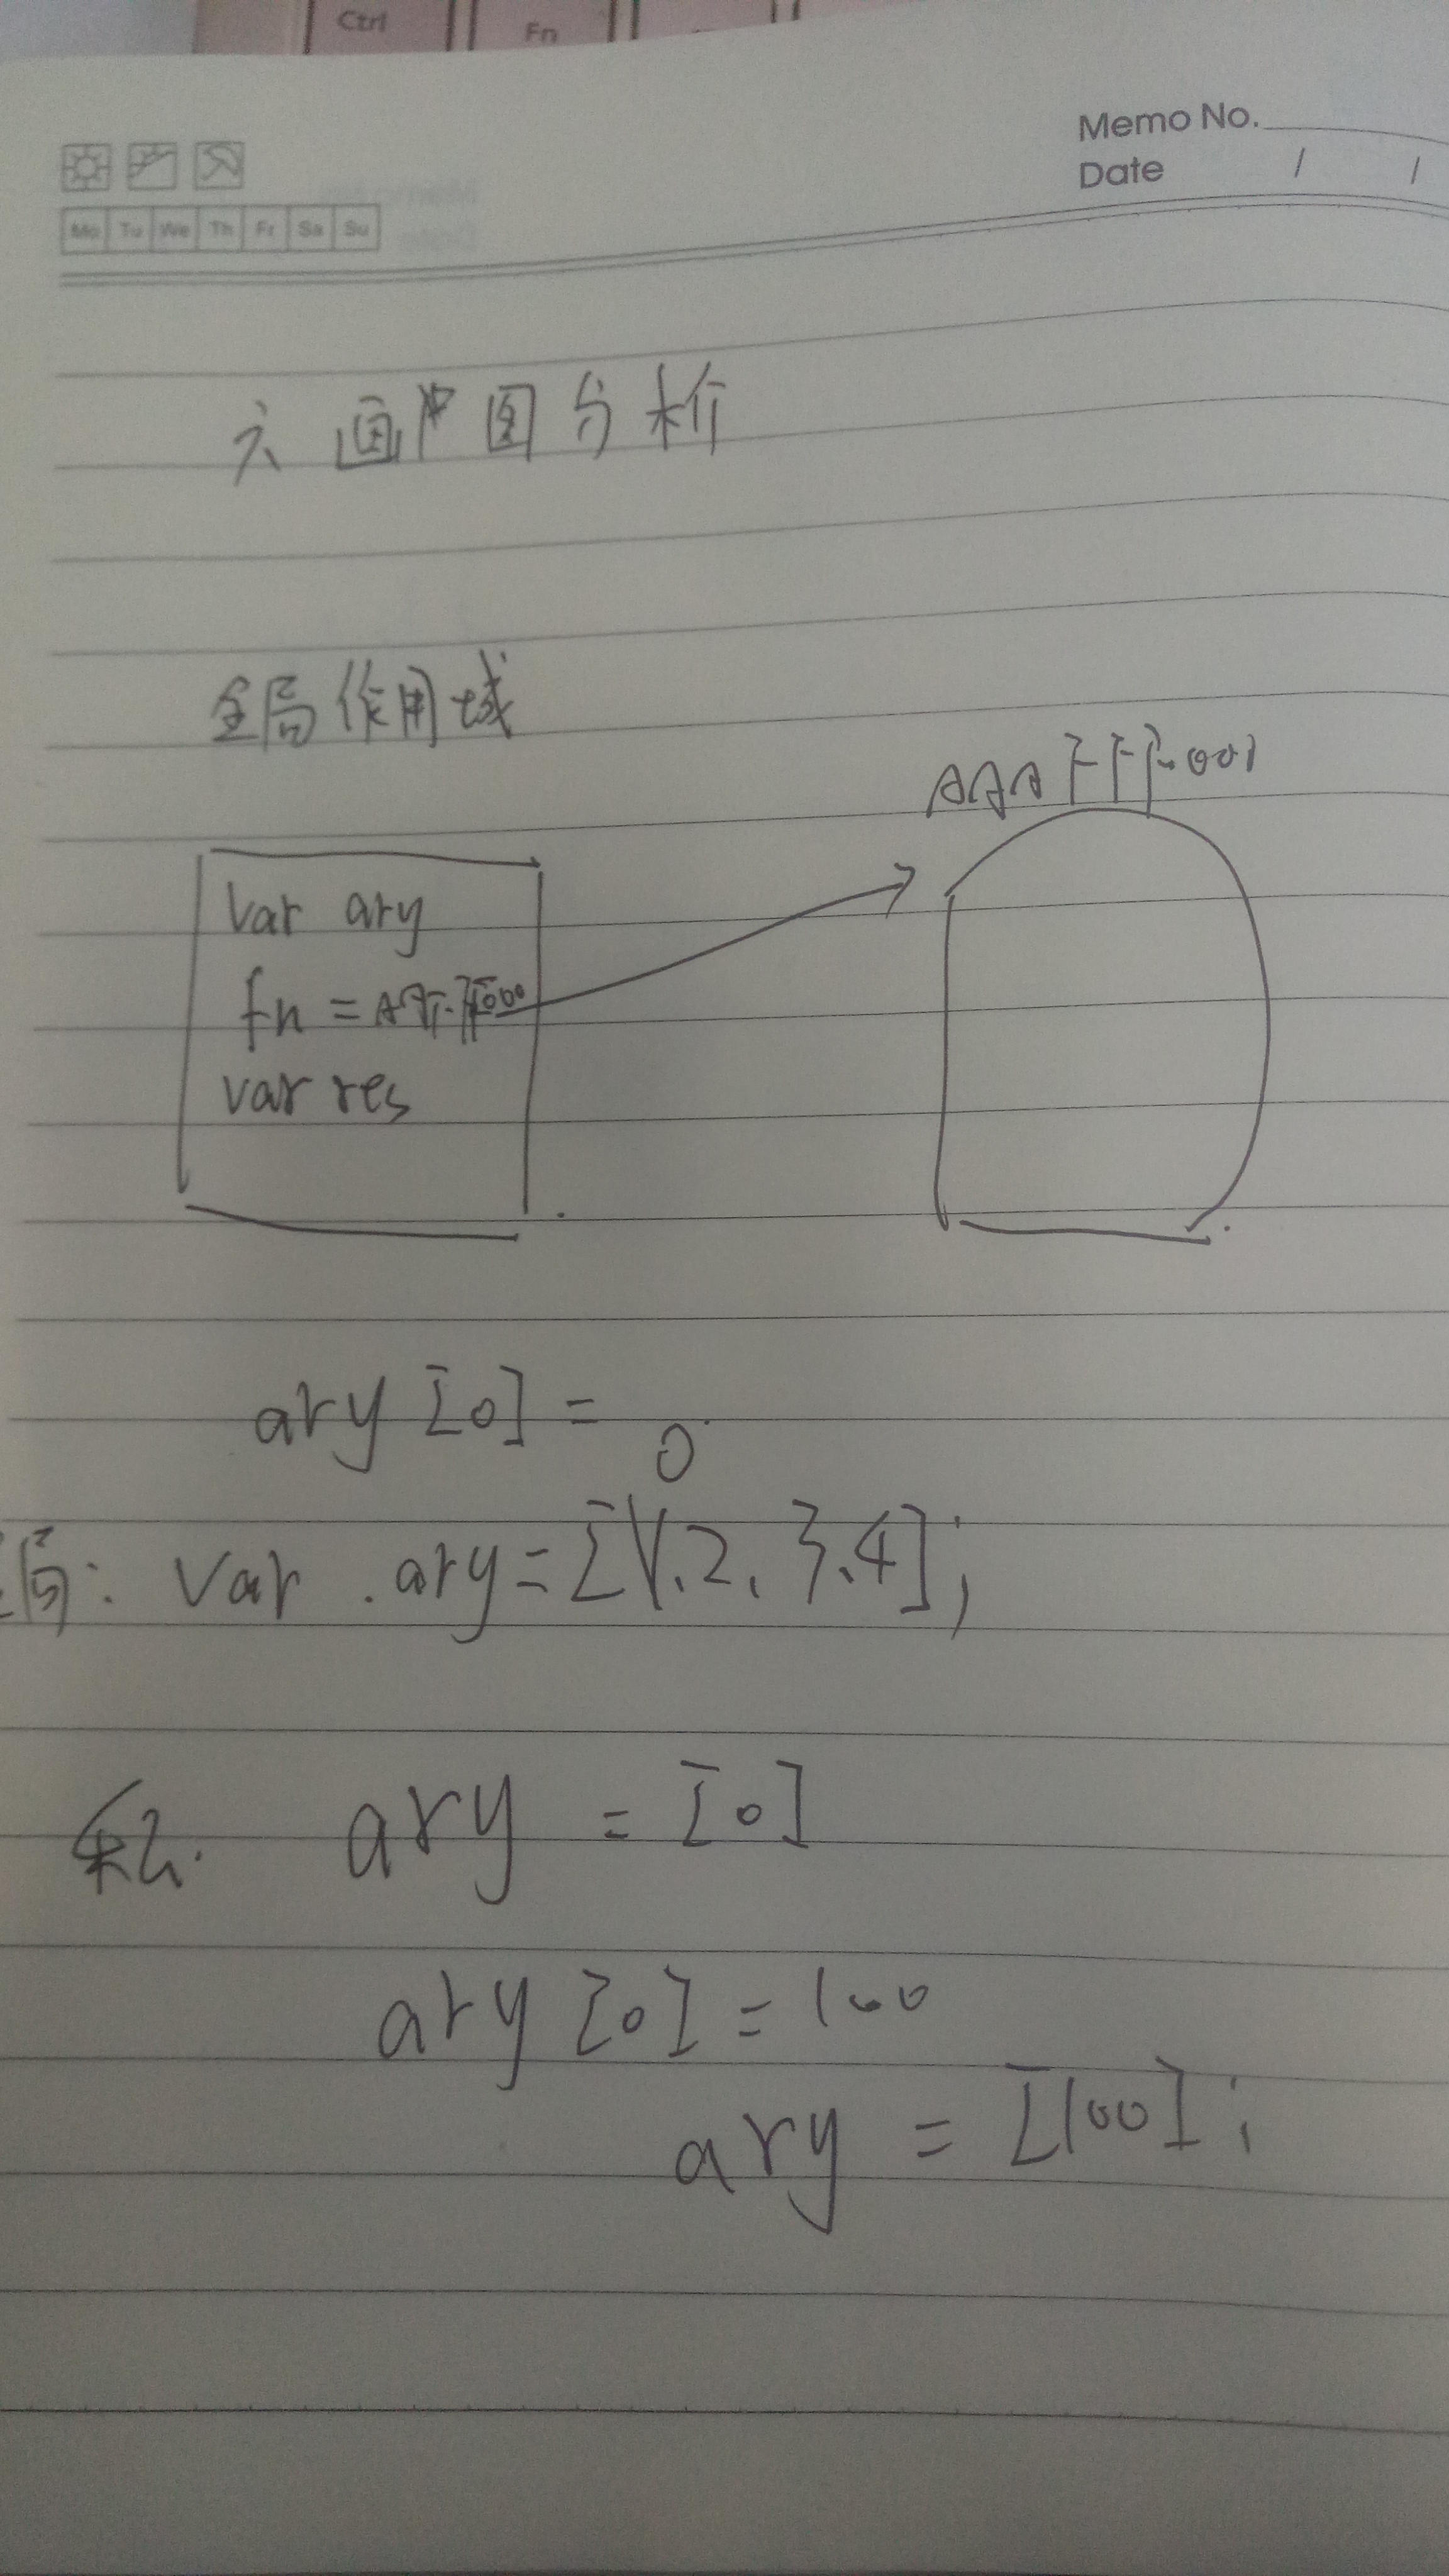 Ctrl
Fn
Memo No.
Date / /
Mo Tu We Th Fr Sa Su
六 画 图分析
全局作用域
AAAFFF001
var ary
fn =
var res
ary [0] = 0
局: var ary = [1,2,3,4];
私. ary = [0]
ary [0] = 100
ary = [100];